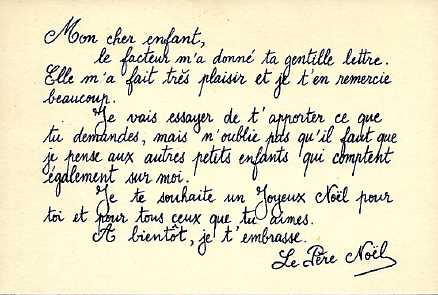 Mon cher enfant,
le facteur m'a donné ta gentille lettre.
Elle m'a fait très plaisir et je t'en remercie
beaucoup.
Je vais essayer de t'apporter ce que
tu demandes, mais n'oublie pas qu'il faut que
je pense aux autres petits enfants qui comptent
également sur moi.
Je te souhaite un Joyeux Noël pour
toi et pour tous ceux que tu aimes.
A bientôt, je t'embrasse.
Le Père Noël